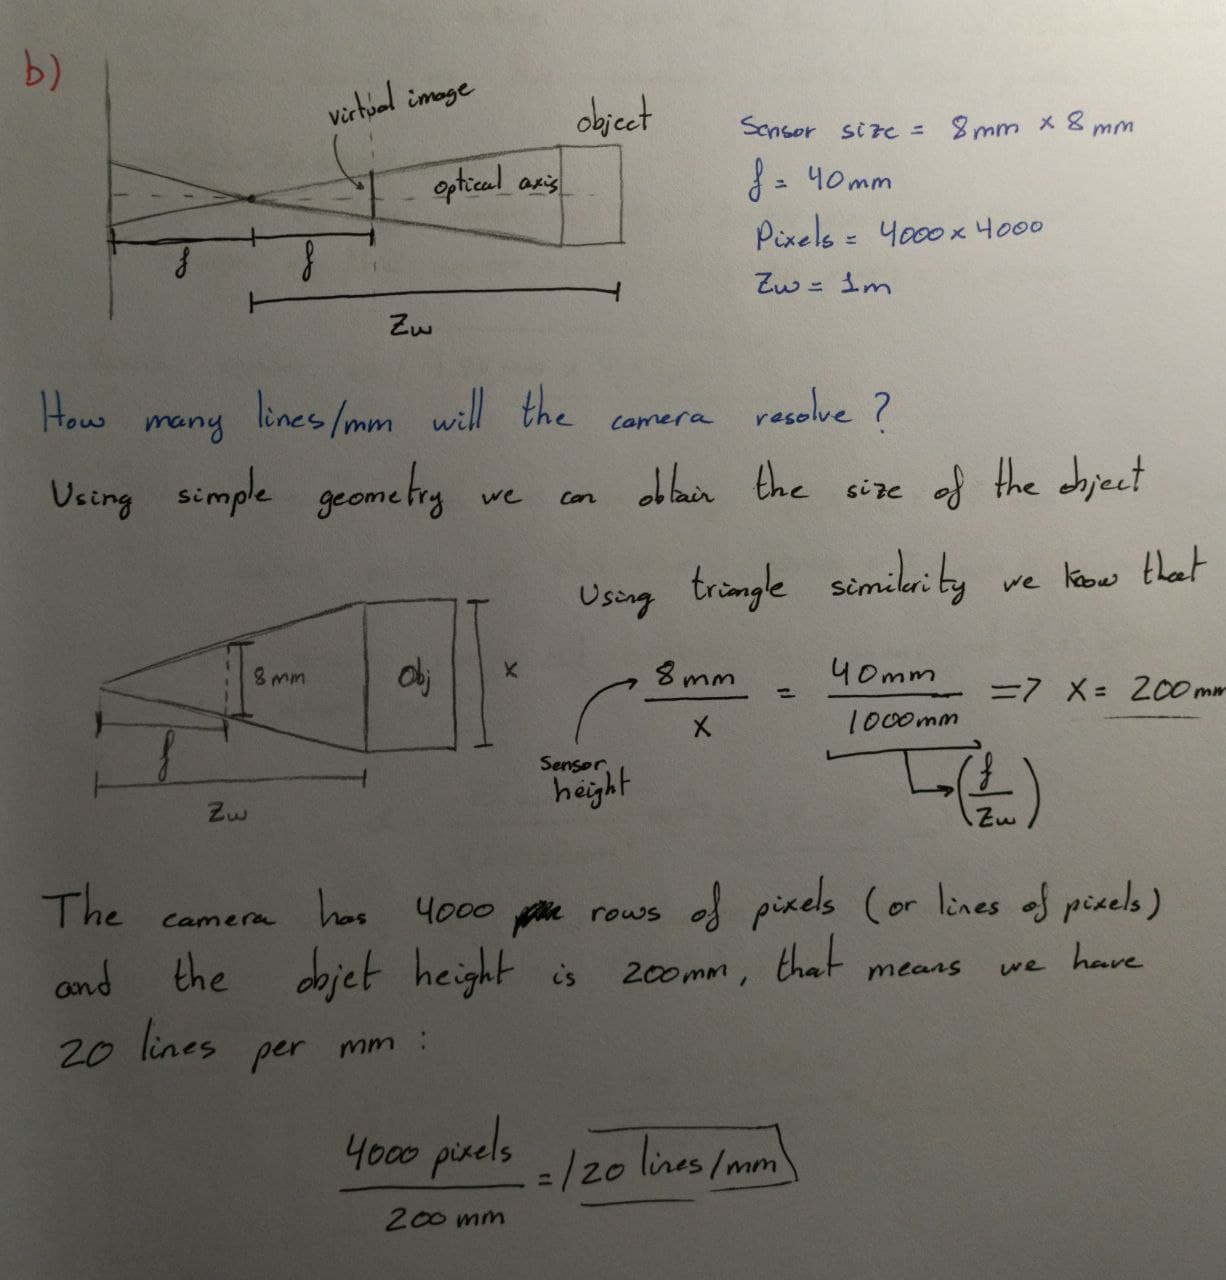 b)
virtual image
object
optical axis
f
f
Zw
Sensor size = 8mm x 8mm
f = 40mm
Pixels = 4000x4000
Zw = 1m
How many lines/mm will the camera resolve?
Using simple geometry we can obtain the size of the object
8mm
Obj
x
f
Zw
Using triangle similarity we know that
8mm / x = 40mm / 1000mm => x = 200mm
Sensor height
(f / Zw)
The camera has 4000 rows of pixels (or lines of pixels)
and the objet height is 200mm, that means we have
20 lines per mm :
4000 pixels / 200 mm = 20 lines/mm